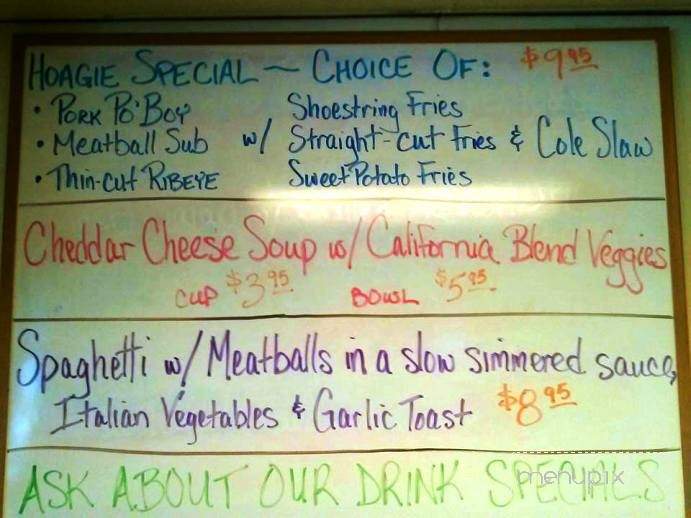 HOAGIE SPECIAL ~ CHOICE OF: $9.95
• PORK PO'BOY Shoestring Fries
• Meatball Sub w/ Straight-cut Fries & Cole Slaw
• Thin-cut RIBEYE Sweet Potato Fries
Cheddar Cheese Soup w/ California Blend Veggies
CUP $3.95 BOWL $5.95
Spaghetti w/ Meatballs in a slow simmered sauce,
Italian Vegetables & Garlic Toast $8.95
ASK ABOUT OUR DRINK SPECIALS
menupix